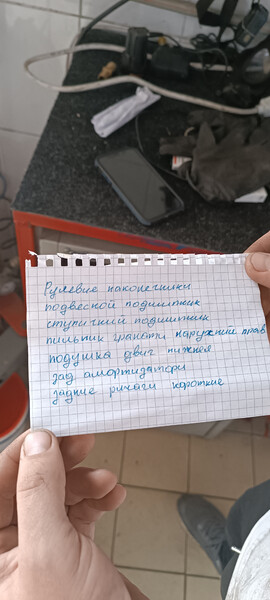 Рулевие наконечники
подвесной подшипник
ступичний подшипник
пильник гранати наружние прав
подушка двиг нижняя
зад амортизатори
задние ричаги короткие